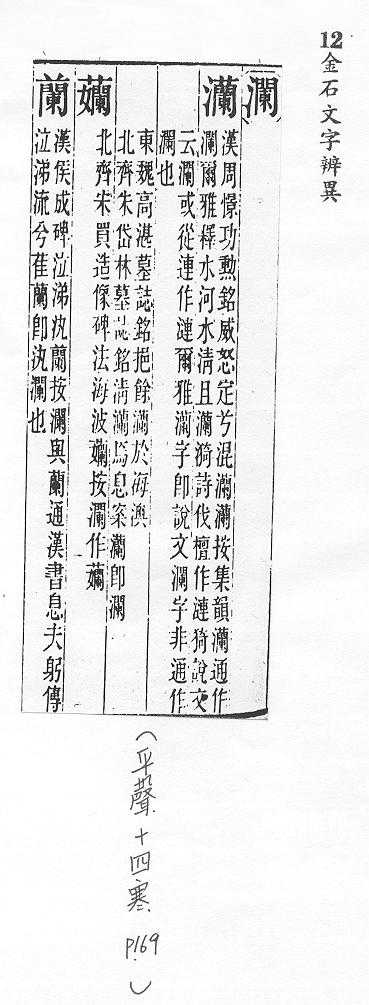 12金石文字辨異
瀾
灡
漢周憬功勳銘威怒定兮混瀾灡按集韻灡通作
瀾爾雅釋水河水清且灡猗詩伐檀作漣猗說文
云瀾或從連作漣爾雅灡字卽說文瀾字非通作
瀾也
東魏高湛墓誌銘挹餘灡於海澳
北齊朱岱林墓誌銘清灡焉息案灡卽瀾
孏
北齊朱買造像碑法海波孏按瀾作孏
蘭
漢侯成碑泣涕汍蘭按瀾與蘭通漢書息夫躬傳
泣涕流兮雈蘭卽汍瀾也
(平聲十四寒 P.169)